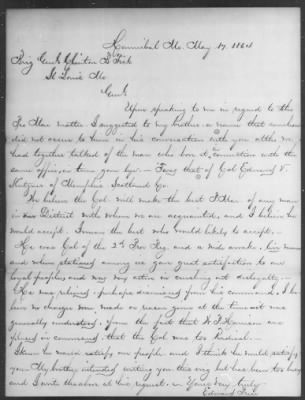 Hannibal Mo. May 17, 1864
Brig Genl Clinton B Fisk
St Louis Mo.
Genl
Upon speaking to me in regard to the
Pro Mar matter I suggested to my brother a name that somehow
did not occur to him in his conversation with you altho we
had together talked of the man who bore it, in connection with the
same office, some time ago — was that of Col Edward
of Memphis Scotland Co.
We believe the Col will make the best P Mar of any man
in our District with whom we are acquainted, and I believe he
would accept. I mean the best who would likely to accept.
He was Col of the 2nd Pro Reg, and a wide awake,
and when stationed among us gave great satisfaction to our
loyal peoples and was very active in crushing out disloyalty.
He was relieved, perhaps dismissed from his command. I be
no charges were made or reasons given at the time it was
generally understood, from the fact that
placed in command, that the Col was too Radical.
I know he would satisfy our people and I think he would satisfy
you. My brother intended writing you this but has been too busy
and I write the above at his request. Yours Very truly
Edward